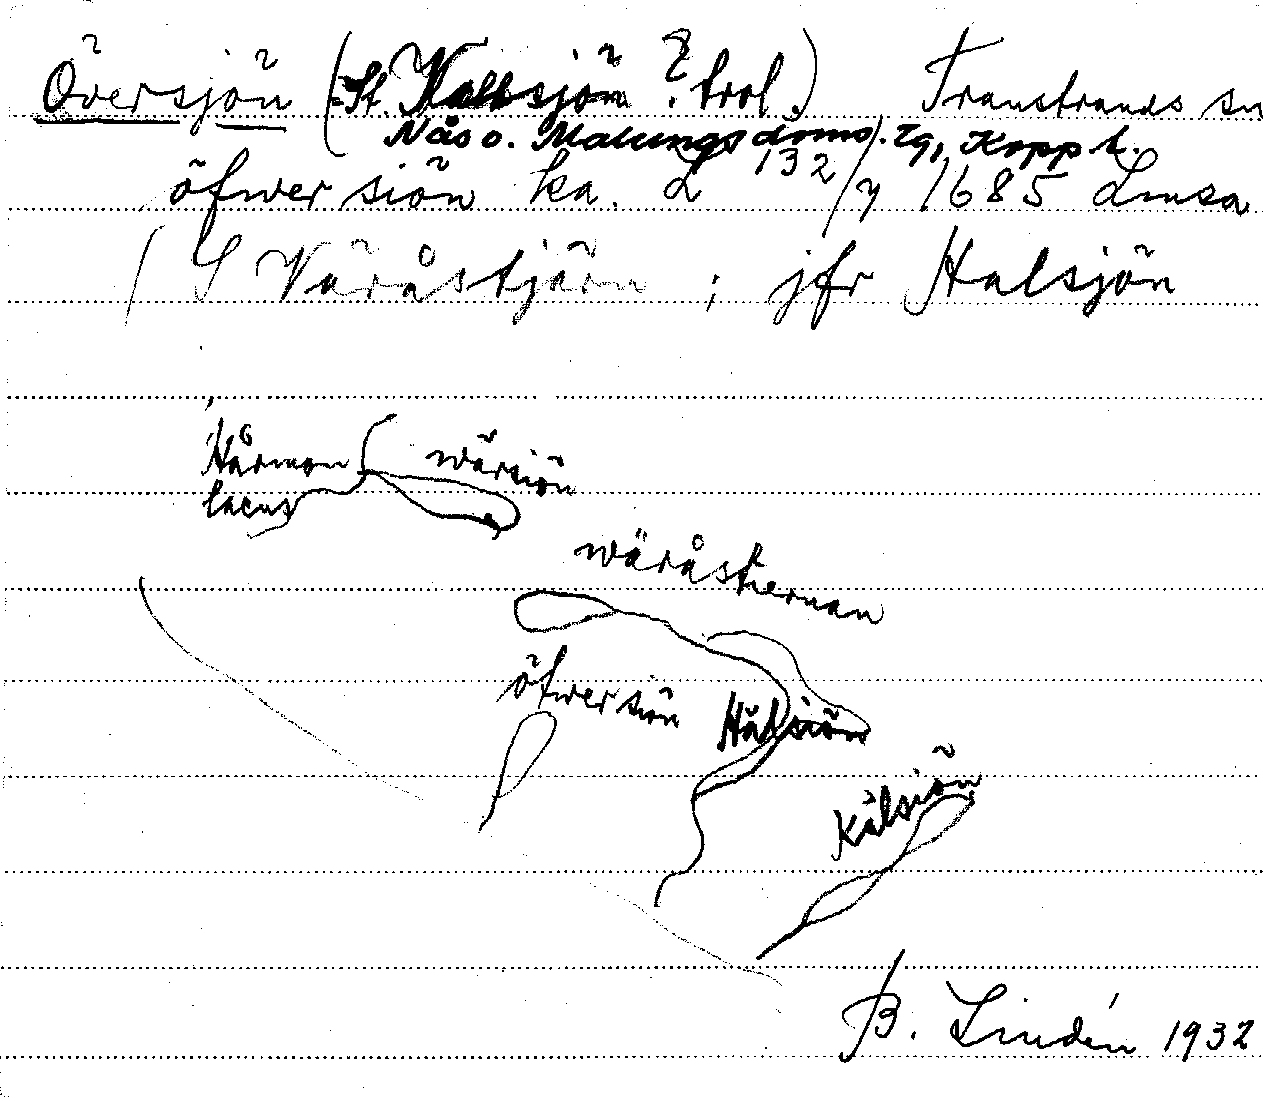 Översjön (= St. Kallsjön ? trol.) Transtrands sn
Nås o. Malungs doms. tg, Kopp l.
öfwer siön ka. L 132/7 1685 Limsa
( S Väråstjärn ; jfr Halsjön
Hårmon
lacus
wärsiön
wäråstiernan
öfwer siön
Hålsiön
Kålsiön
B. Lindén 1932